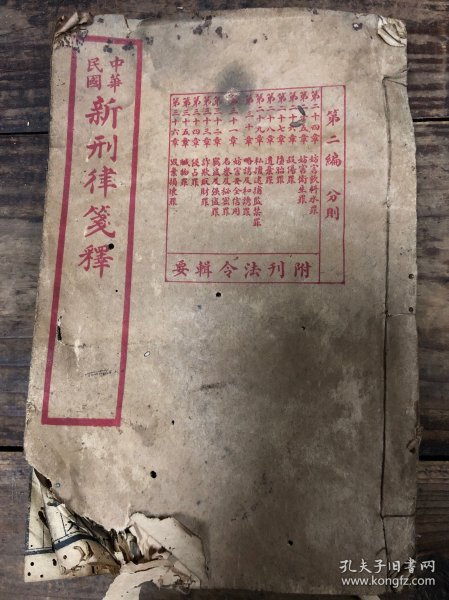 中華
民國
新刑律箋釋
第二編　分則
第二十四章　妨害飲料水罪
第二十五章　妨害衛生罪
第二十六章　殺傷罪
第二十七章　墮胎罪
第二十八章　遺棄罪
第二十九章　私擅逮捕監禁罪
第三十章　略誘及和誘罪
第三十一章　妨害安全信用
名譽及秘密罪
第三十二章　竊盜及强盜罪
第三十三章　詐欺取財罪
第三十四章　侵占罪
第三十五章　贓物罪
第三十六章　毀棄損壞罪
附刊法令輯要
孔夫子旧书网
www.kongfz.com